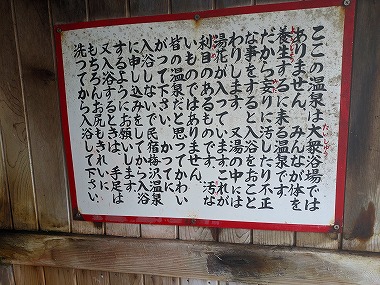 ここの温泉は大衆浴場では
ありません、みんなが体を
養生するに来る温泉です
だから妄りに汚したり不正
な事をすると入浴をおこと
わりします。又湯の中には
湯花が入っています。これが
利目のあるものです。汚な
いものではありません。
皆の温泉だと思ってかわい
がつて下さい。かってに
入浴しないで民宿梅沢温泉
に申し込みをしてから入浴
するようにお願いします。
又入浴するときは、手足は
もちろんお尻もきれいに
洗ってから入浴して下さい。